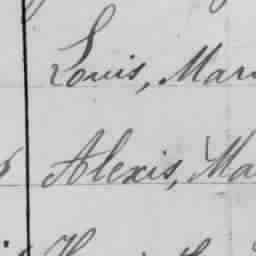 Louis, Mar
Alexis, Ma